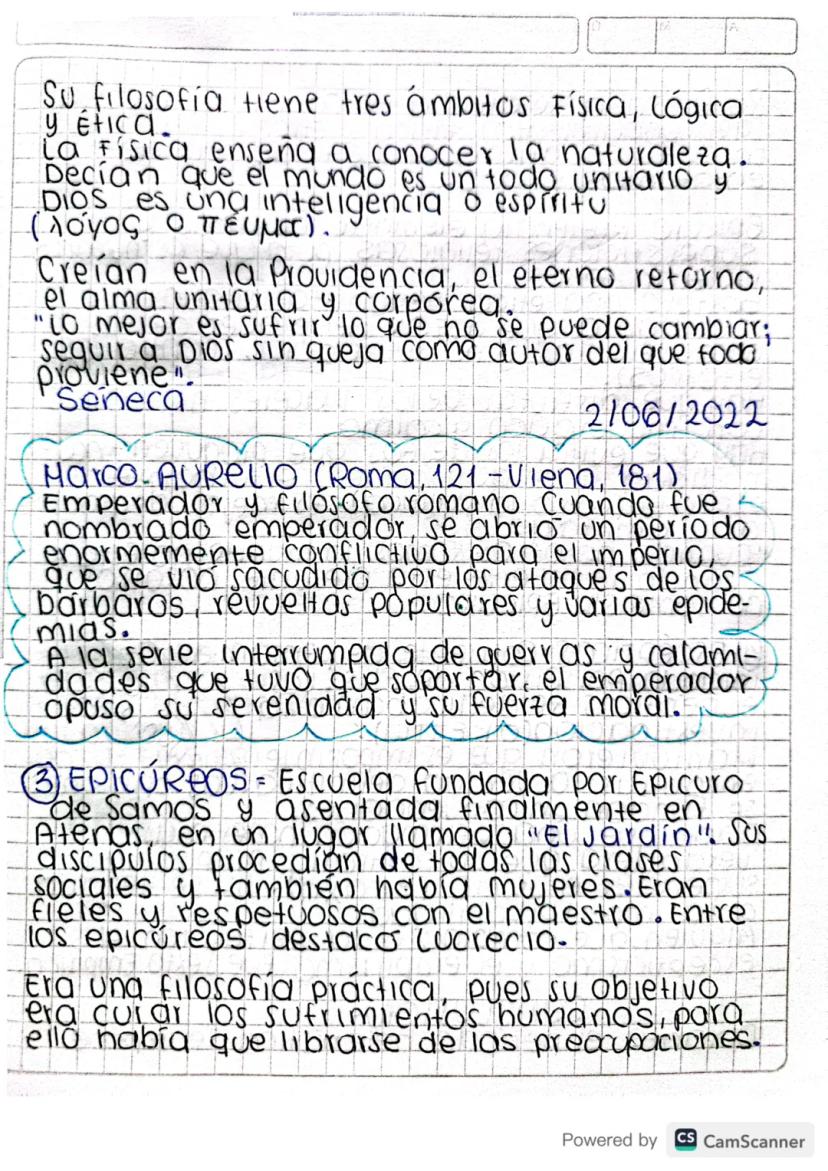 Su filosofía tiene tres ámbitos Física, Lógica
y Ética.
La Física enseña a conocer la naturaleza.
Decían que el mundo es un todo unitario y
Dios es una inteligencia o espíritu
(λόγος o πέυμα).
Creían en la Providencia, el eterno retorno,
el alma unitaria y corpórea.
"Lo mejor es sufrir lo que no se puede cambiar;
seguir a Dios sin queja como autor del que todo
proviene".
Séneca
2/06/2022
Marco Aurelio (Roma, 121 - Viena, 181)
Emperador y filósofo romano Cuando fue
nombrado emperador, se abrió un período
enormemente conflictivo para el imperio,
que se vió sacudido por los ataques de los
bárbaros, revueltas populares y varias epide-
mias.
A la serie interrumpida de guerras y calami-
dades que tuvo que soportar, el emperador
opuso su serenidad y su fuerza moral.
3 EPICÚREOS = Escuela fundada por Epicuro
de Samos y asentada finalmente en
Atenas, en un lugar llamado "El Jardín". Sus
discípulos procedían de todas las clases
sociales y también había mujeres. Eran
fieles y respetuosos con el maestro. Entre
los epicúreos destacó Lucrecio.
Era una filosofía práctica, pues su objetivo
era curar los sufrimientos humanos, para
ello había que librarse de las preocupaciones.
Powered by CS CamScanner